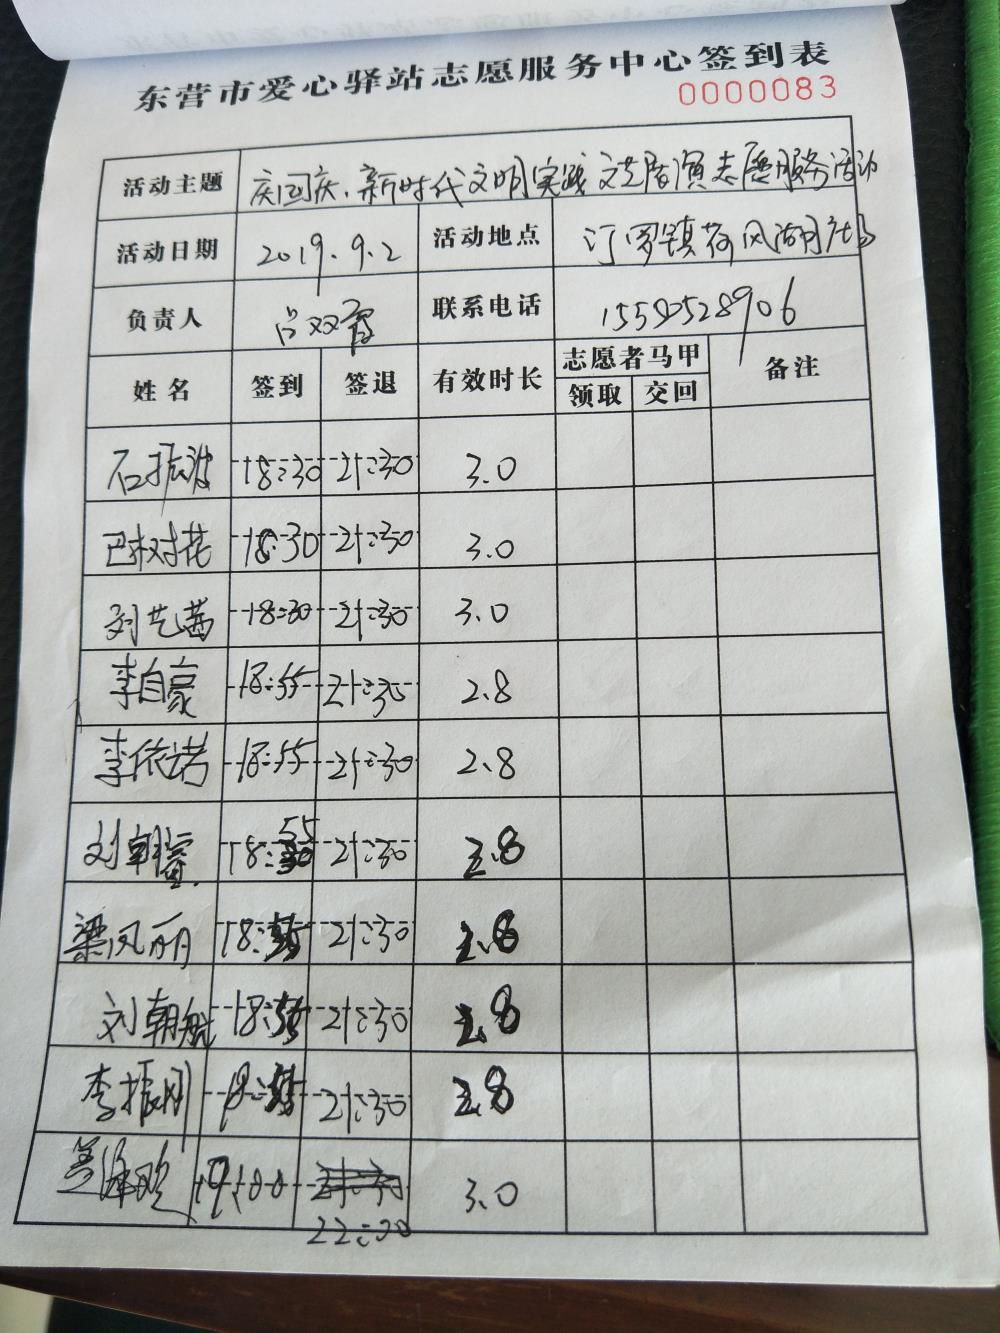 东营市爱心驿站志愿服务中心签到表
0000083
活动主题 庆国庆、新时代文明实践文艺展演志愿服务活动
活动日期 2019.9.2 活动地点 汀罗镇荷风湖广场
负责人 吕双霞 联系电话
姓名 签到 签退 有效时长 志愿者马甲 备注
领取 交回
石振波 18:30 21:30 3.0
巴树花 18:30 21:30 3.0
刘艺茜 18:30 21:30 3.0
李自豪 18:55 21:30 2.8
李依诺 18:55 21:30 2.8
刘朝 18:55 21:30 2.8
梁凤丽 18:55 21:30 2.8
刘朝 18:55 21:30 2.8
李振刚 18:55 21:30 2.8
姜 19:00 22:00 3.0